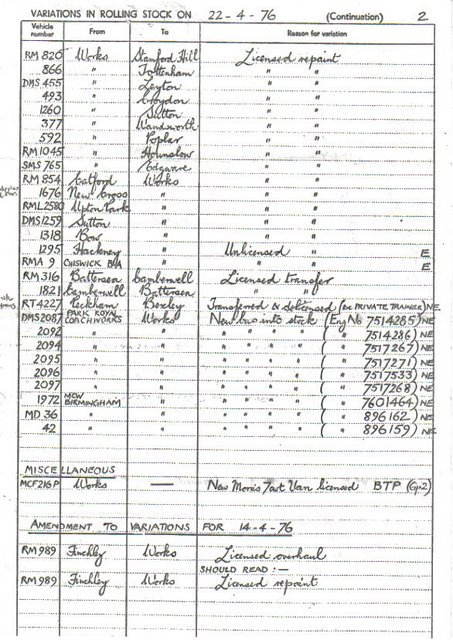 VARIATIONS IN ROLLING STOCK ON 22-4-76 (Continuation) 2
Vehicle number From To Reason for variation
RM 820 Works Stamford Hill Licensed repaint
866 " Tottenham " "
DMS 455 " Leyton " "
493 " Croydon " "
1260 " Sutton " "
377 " Wandsworth " "
592 " Poplar " "
RM 1045 " Hounslow " "
SMS 765 " Edgware " "
RM 854 Catford Works " "
1676 New Cross " " "
RML 2580 Upton Park " " "
DMS 1259 Sutton " " "
1318 Bow " " "
1295 Hackney " Unlicensed " E
RMA 9 CHISWICK " " " E
RM 316 Battersea Camberwell Licensed transfer
1821 Camberwell Battersea " "
RT 4227 Peckham Bexley Transferred & delicensed (EX PRIVATE TRAINER) NE
DMS 2087 PARK ROYAL COACHWORKS Works New bus into stock (Eng No 7514285) NE
2092 " " " " " " ( " 7514286) NE
2094 " " " " " " ( " 7517267) NE
2095 " " " " " " ( " 7517271) NE
2096 " " " " " " ( " 7517533) NE
2097 " " " " " " ( " 7517268) NE
1972 MCW BIRMINGHAM " " " " " ( " 7601464) NE
MD 36 " " " " " " ( " 896162) NE
42 " " " " " " ( " 896159) NE
MISCELLANEOUS
MCF 216P Works — New Morris 7cwt Van licensed BTP (Gp2)
AMENDMENT TO VARIATIONS FOR 14-4-76
RM 989 Finchley Works Licensed overhaul
SHOULD READ :—
RM 989 Finchley Works Licensed repaint